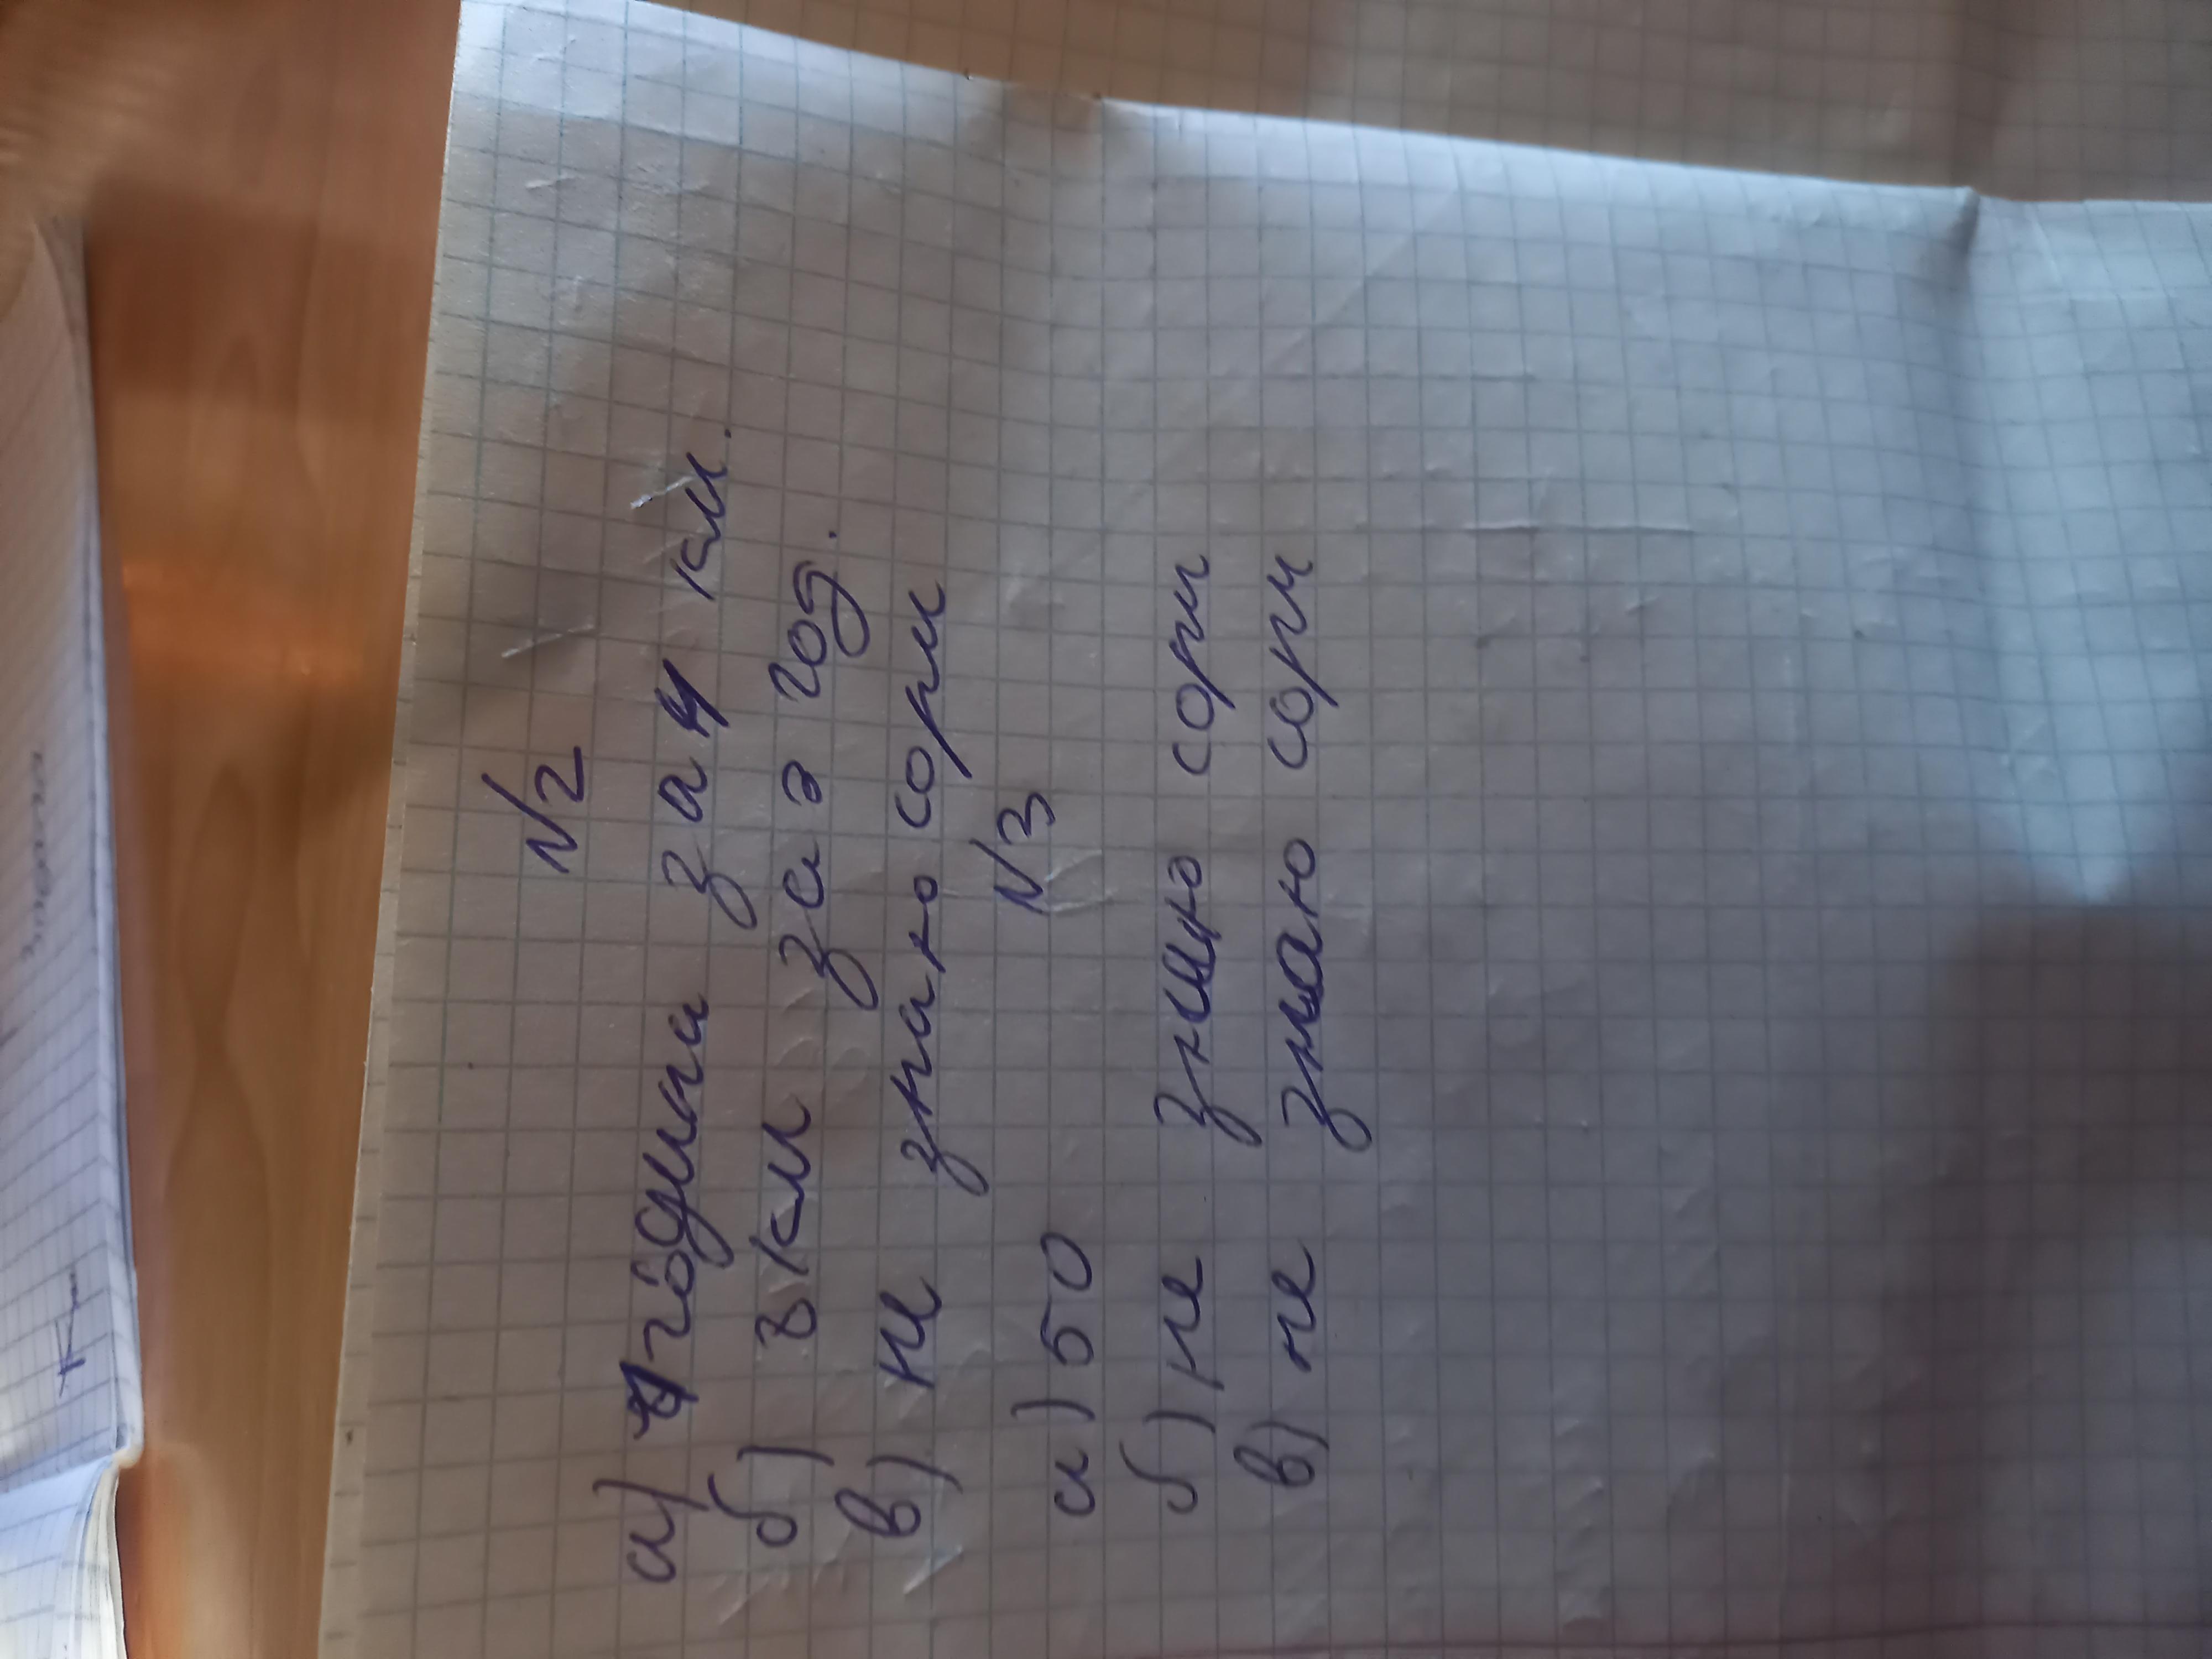 №2
а) година за 4 км.
б) 8 км за 2 год.
в) не знаю сорм
№3
а) 50
б) не знаю сорм
в) не знаю сорм